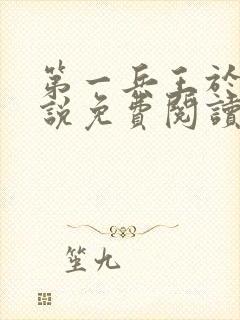 第一兵王於
說免費閱讀
笙九